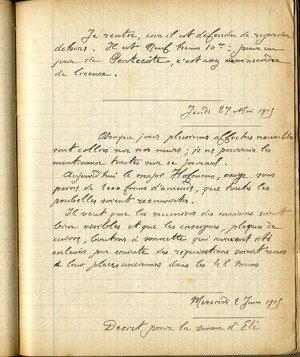 Je rentre, car il est défendu de regarder
dehors. Il est Neuf heures 10m : pour un
jour de Pentecôte, c'est assez d'accorder
de licence.
Jeudi 27 Mai 1915
Chaque jour plusieurs affiches nouvelles
sont collées sur nos murs ; je ne pourrais les
mentionner toutes sur ce journal.
Aujourd'hui le major Hofmann, exige sous
peine de 1000 francs d'amende, que toutes les
poubelles soient recouvertes.
Il veut que les numéros des maisons soient
bien visibles et que les enseignes, plaques de
cuivre, boutons de sonnette qui avaient été
enlevés, par crainte des réquisitions soient remis
à leur place anciennes dans les 48 heures
Mercredi 2 Juin 1915
Decret, pour la saison d'Eté